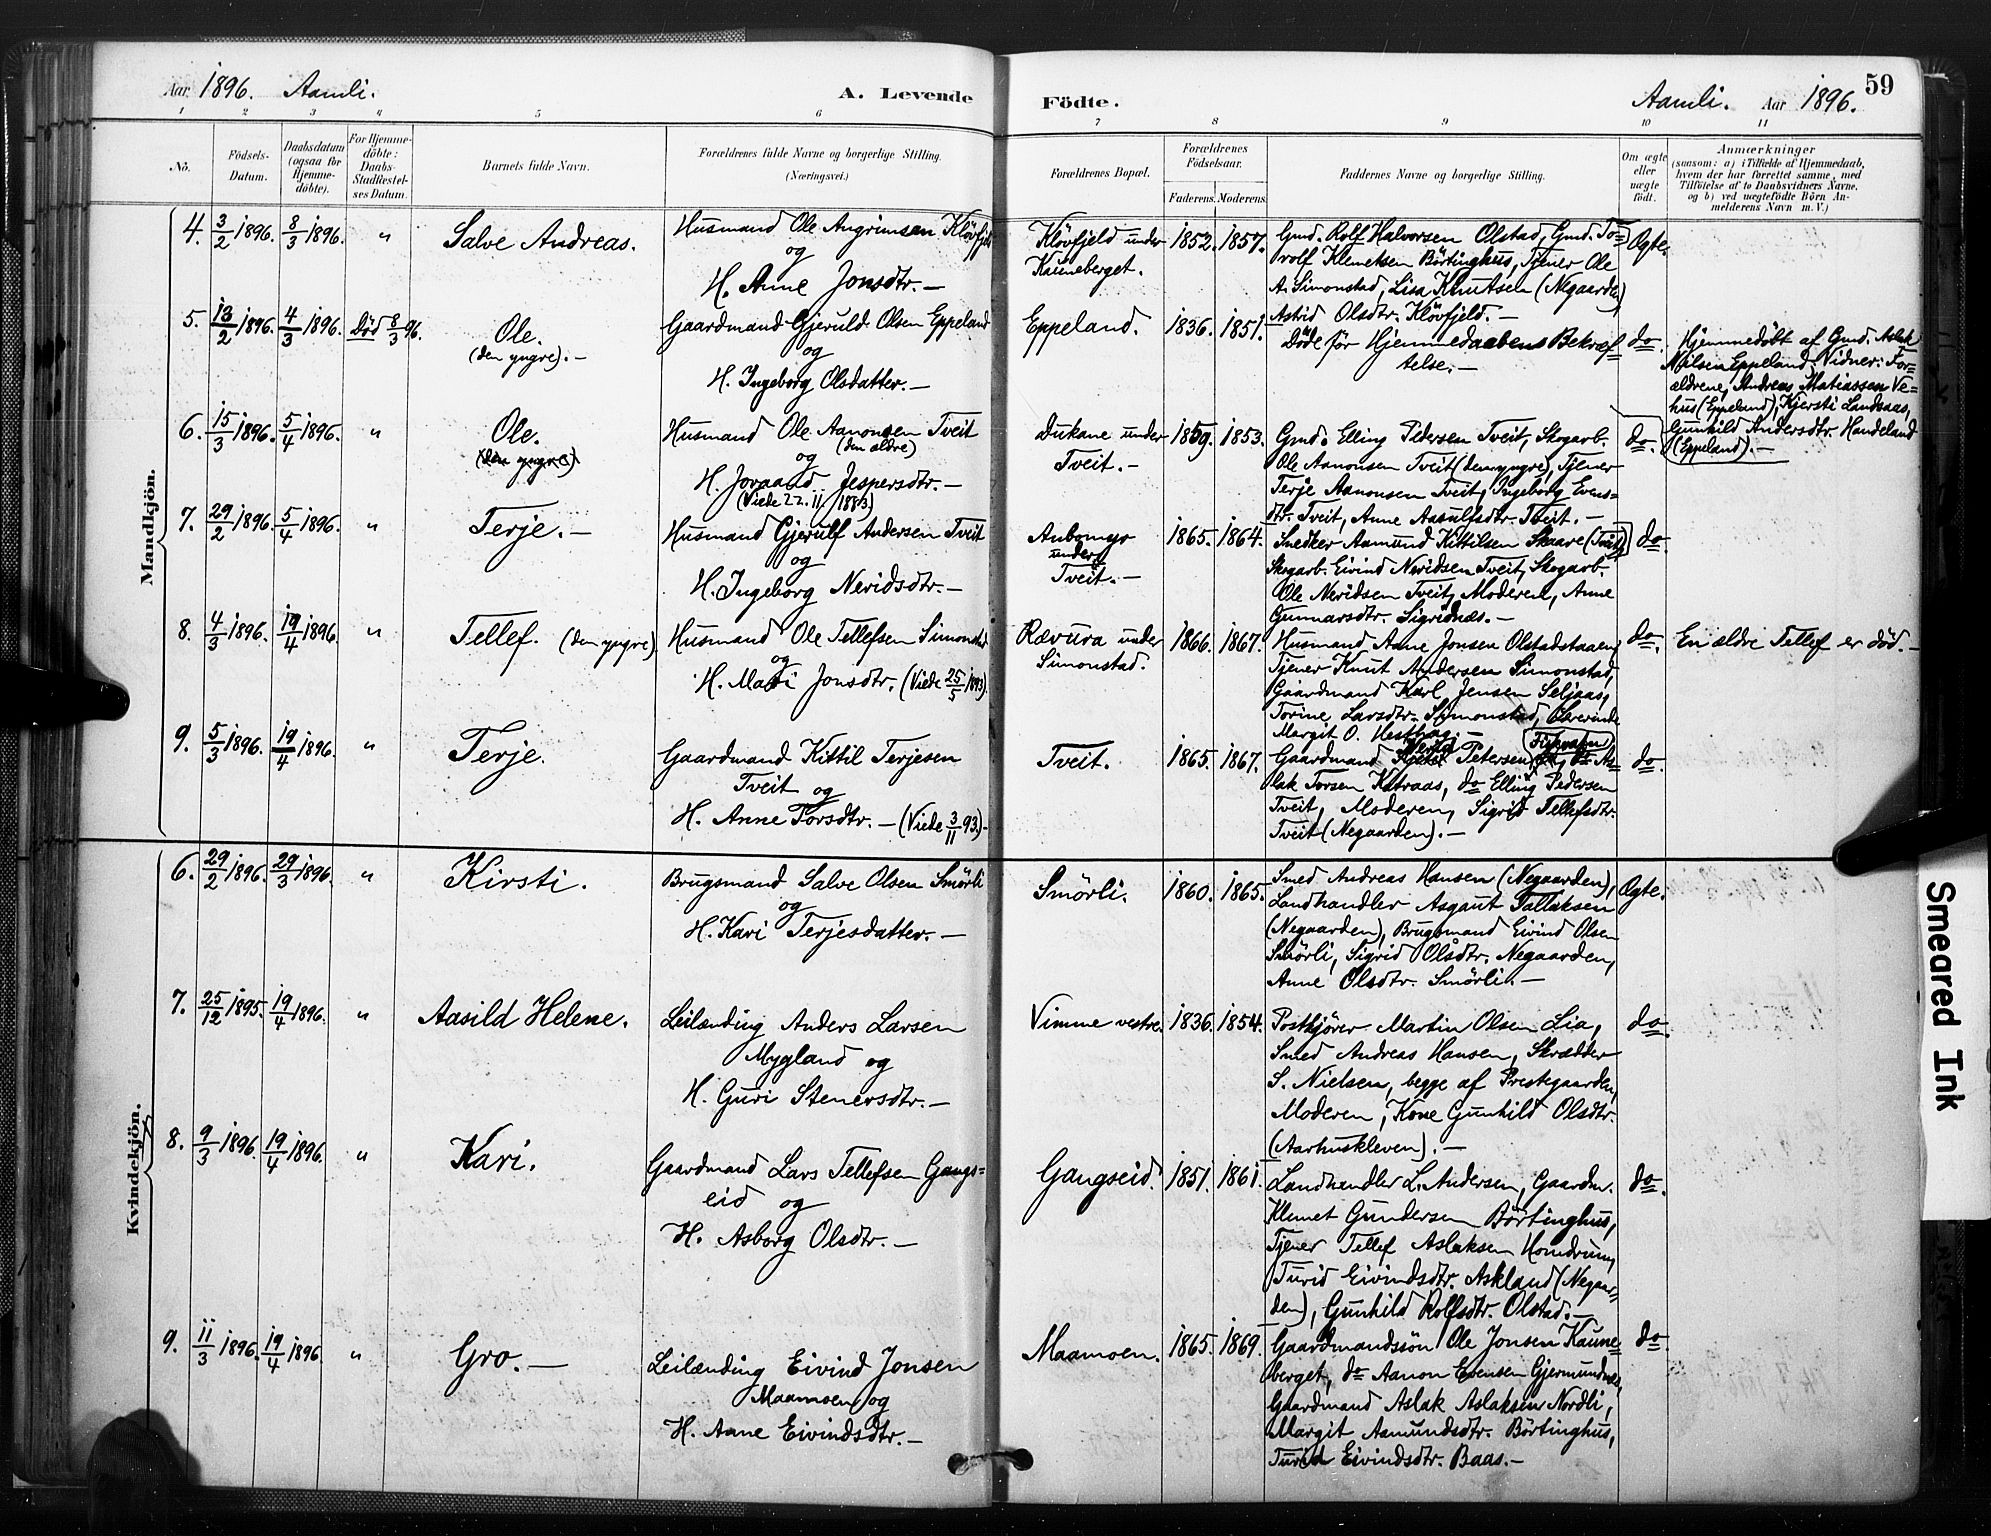 Aar 1896. Aamli. A. Levende Födte. Aamli. Aar 1896. 59
1 2 3 4 5 6 7 8 9 10 11
No.
Födsels-
Datum.
Daabsdatum
(ogsaa for
Hjemme-
döbte).
For Hjemme-
döbte:
Daabs-
Stadfestel-
ses Datum.
Barnets fulde Navn.
Forældrenes fulde Navne og borgerlige Stilling.
(Næringsvei.)
Forældrenes Bopæl.
Forældrenes
Födselsaar.
Faderens. Moderens.
Faddernes Navne og borgerlige Stilling.
Om ægte
eller
uægte
födt.
Anmærkninger
(saasom: a) i Tilfælde af Hjemmedaab,
hvem der har forrettet samme, med
Tilföielse af to Daabsvidners Navne,
og b) ved uegtefödte Börn An-
melderens Navn m. V.)
Mandkjön.
4. 3/2 1896. 8/3 1896. " Salve Andreas.
Husmand Ole Angrimsen Klövfjeld
og
H. Anne Jonsdtr. —
Klövfjeld under
Kauneberget.
1852. 1857.
Gmd. Rolf Halvorsen Olstad, Gmd. To=
rolf Klemetsen Börtinghus, Tjener Ole
A. Simonstad, Lisa Knutsen (Negaarden)
Astrid Olsdtr. Klövfjeld. —
Ægte.
5. 13/2 1896. 4/3 1896. Död 8/3 96.
Ole.
(den yngre). —
Gaardmand Gjeruld Olsen Eppeland
og
H. Ingeborg Olsdatter. —
Eppeland. 1836. 1851.
Döde för Hjemmedaabens Bekræf=
telse. —
do.
Hjemmedöbt af Gmd. Aslak
Nilsen Eppeland, Vidner: For=
ældrene, Andreas Matiassen Ve=
hus (Eppeland), Kjersti Landsaas,
Gunhild Andersdtr. Handeland
(Eppeland). —
6. 15/3 1896. 5/4 1896. "
Ole.
(den yngre)
Husmand Ole Aanonsen Tveit
(den ældre)
og
H. Jovaand Jespersdtr. —
(Viede 22.11 1883)
Dukane under
Tveit. —
1859. 1853.
Gmd. Elling Pedersen Tveit, Skogarb.
Ole Aanonsen Tveit (den yngre), Tjener
Terje Aanonsen Tveit, Ingeborg Evens=
dtr. Tveit, Anne Aasulfsdtr. Tveit. —
do.
7. 29/2 1896. 5/4 1896. " Terje. —
Husmand Gjerulf Andersen Tveit
og
H. Ingeborg Neridsdtr. —
under
Tveit. —
1865. 1864.
Snedker Aamund Kittilsen Skaare (Tveit)
Skogarb. Eivind Neridsen Tveit, Skogarb.
Ole Neridsen Tveit, Moderen, Anne
Gunnarsdtr. Sigridnæs. —
do.
8. 4/3 1896. 19/4 1896. " Tellef. (den yngre)
Husmand Ole Tellefsen Simonstad
og
H. Mari Jonsdtr. (Viede 25/5 1893).
Rævura under
Simonstad.
1866. 1867.
Husmand Aane Jonsen Olstadstaaen,
Tjener Knut Andersen Simonstad,
Gaardmand Karl Jensen Seljaas,
Torine Larsdtr. Simonstad, Lærerinde
Margit O. Hesthag. —
do. En ældre Tellef er död. —
9. 5/3 1896. 19/4 1896. " Terje.
Gaardmand Kittil Terjesen
Tveit og
H. Anne Torsdtr. — (Viede 3/11 93.) —
Tveit. 1865. 1867.
Gaardmand Nerid Petersen Fiskvatn, do As=
lak Torsen Katraas, do Elling Pedersen
Tveit, Moderen, Sigrid Tellefsdtr.
Tveit (Negaarden). —
do.
Kvindekjön.
6. 29/2 1896. 29/3 1896. " Kirsti.
Brugsmand Salve Olsen Smörli
og
H. Kari Terjesdatter. —
Smörli. 1860. 1865.
Smed Andreas Hansen (Negaarden),
Landhandler Asgaut Tallaksen
(Negaarden), Brugsmand Eivind Olsen
Smörli, Sigrid Olsdtr. Negaarden,
Anne Olsdtr. Smörli. —
Ægte.
7. 25/12 1895. 19/4 1896. " Aasild Helene.
Leilænding Anders Larsen
Mygland og
H. Guri Stenersdtr. —
Vimme vestre. 1836. 1854.
Postkjörer Martin Olsen Lia,
Smed Andreas Hansen, Skrædder
S. Nielsen, begge af Prestegaarden,
Moderen, Kone Gunhild Olsdtr.
(Aarhuskleven). —
do.
8. 9/3 1896. 19/4 1896. " Kari.
Gaardmand Lars Tellefsen Gangs=
eid og
H. Asborg Olsdtr. —
Gangseid. 1851. 1861.
Landhandler L. Andersen, Gaardm.
Klemet Gundersen Börtinghus,
Tjener Tellef Aslaksen Homdrum,
Turid Eivindsdtr. Askland (Negaar=
den), Gunhild Rolfsdtr. Olstad. —
do.
9. 11/3 1896. 19/4 1896. " Gro. —
Leilænding Eivind Jonsen
Maamoen og
H. Aane Eivindsdtr. —
Maamoen. 1865. 1869.
Gaardmandssön Ole Jonsen Kaune=
berget, do Aanon Evensen Gjermundnes,
Gaardmand Aslak Aslaksen Nordli,
Margit Aamundsdtr. Börtinghus,
Turid Eivindsdtr. Baas. —
do.
Smeared Ink